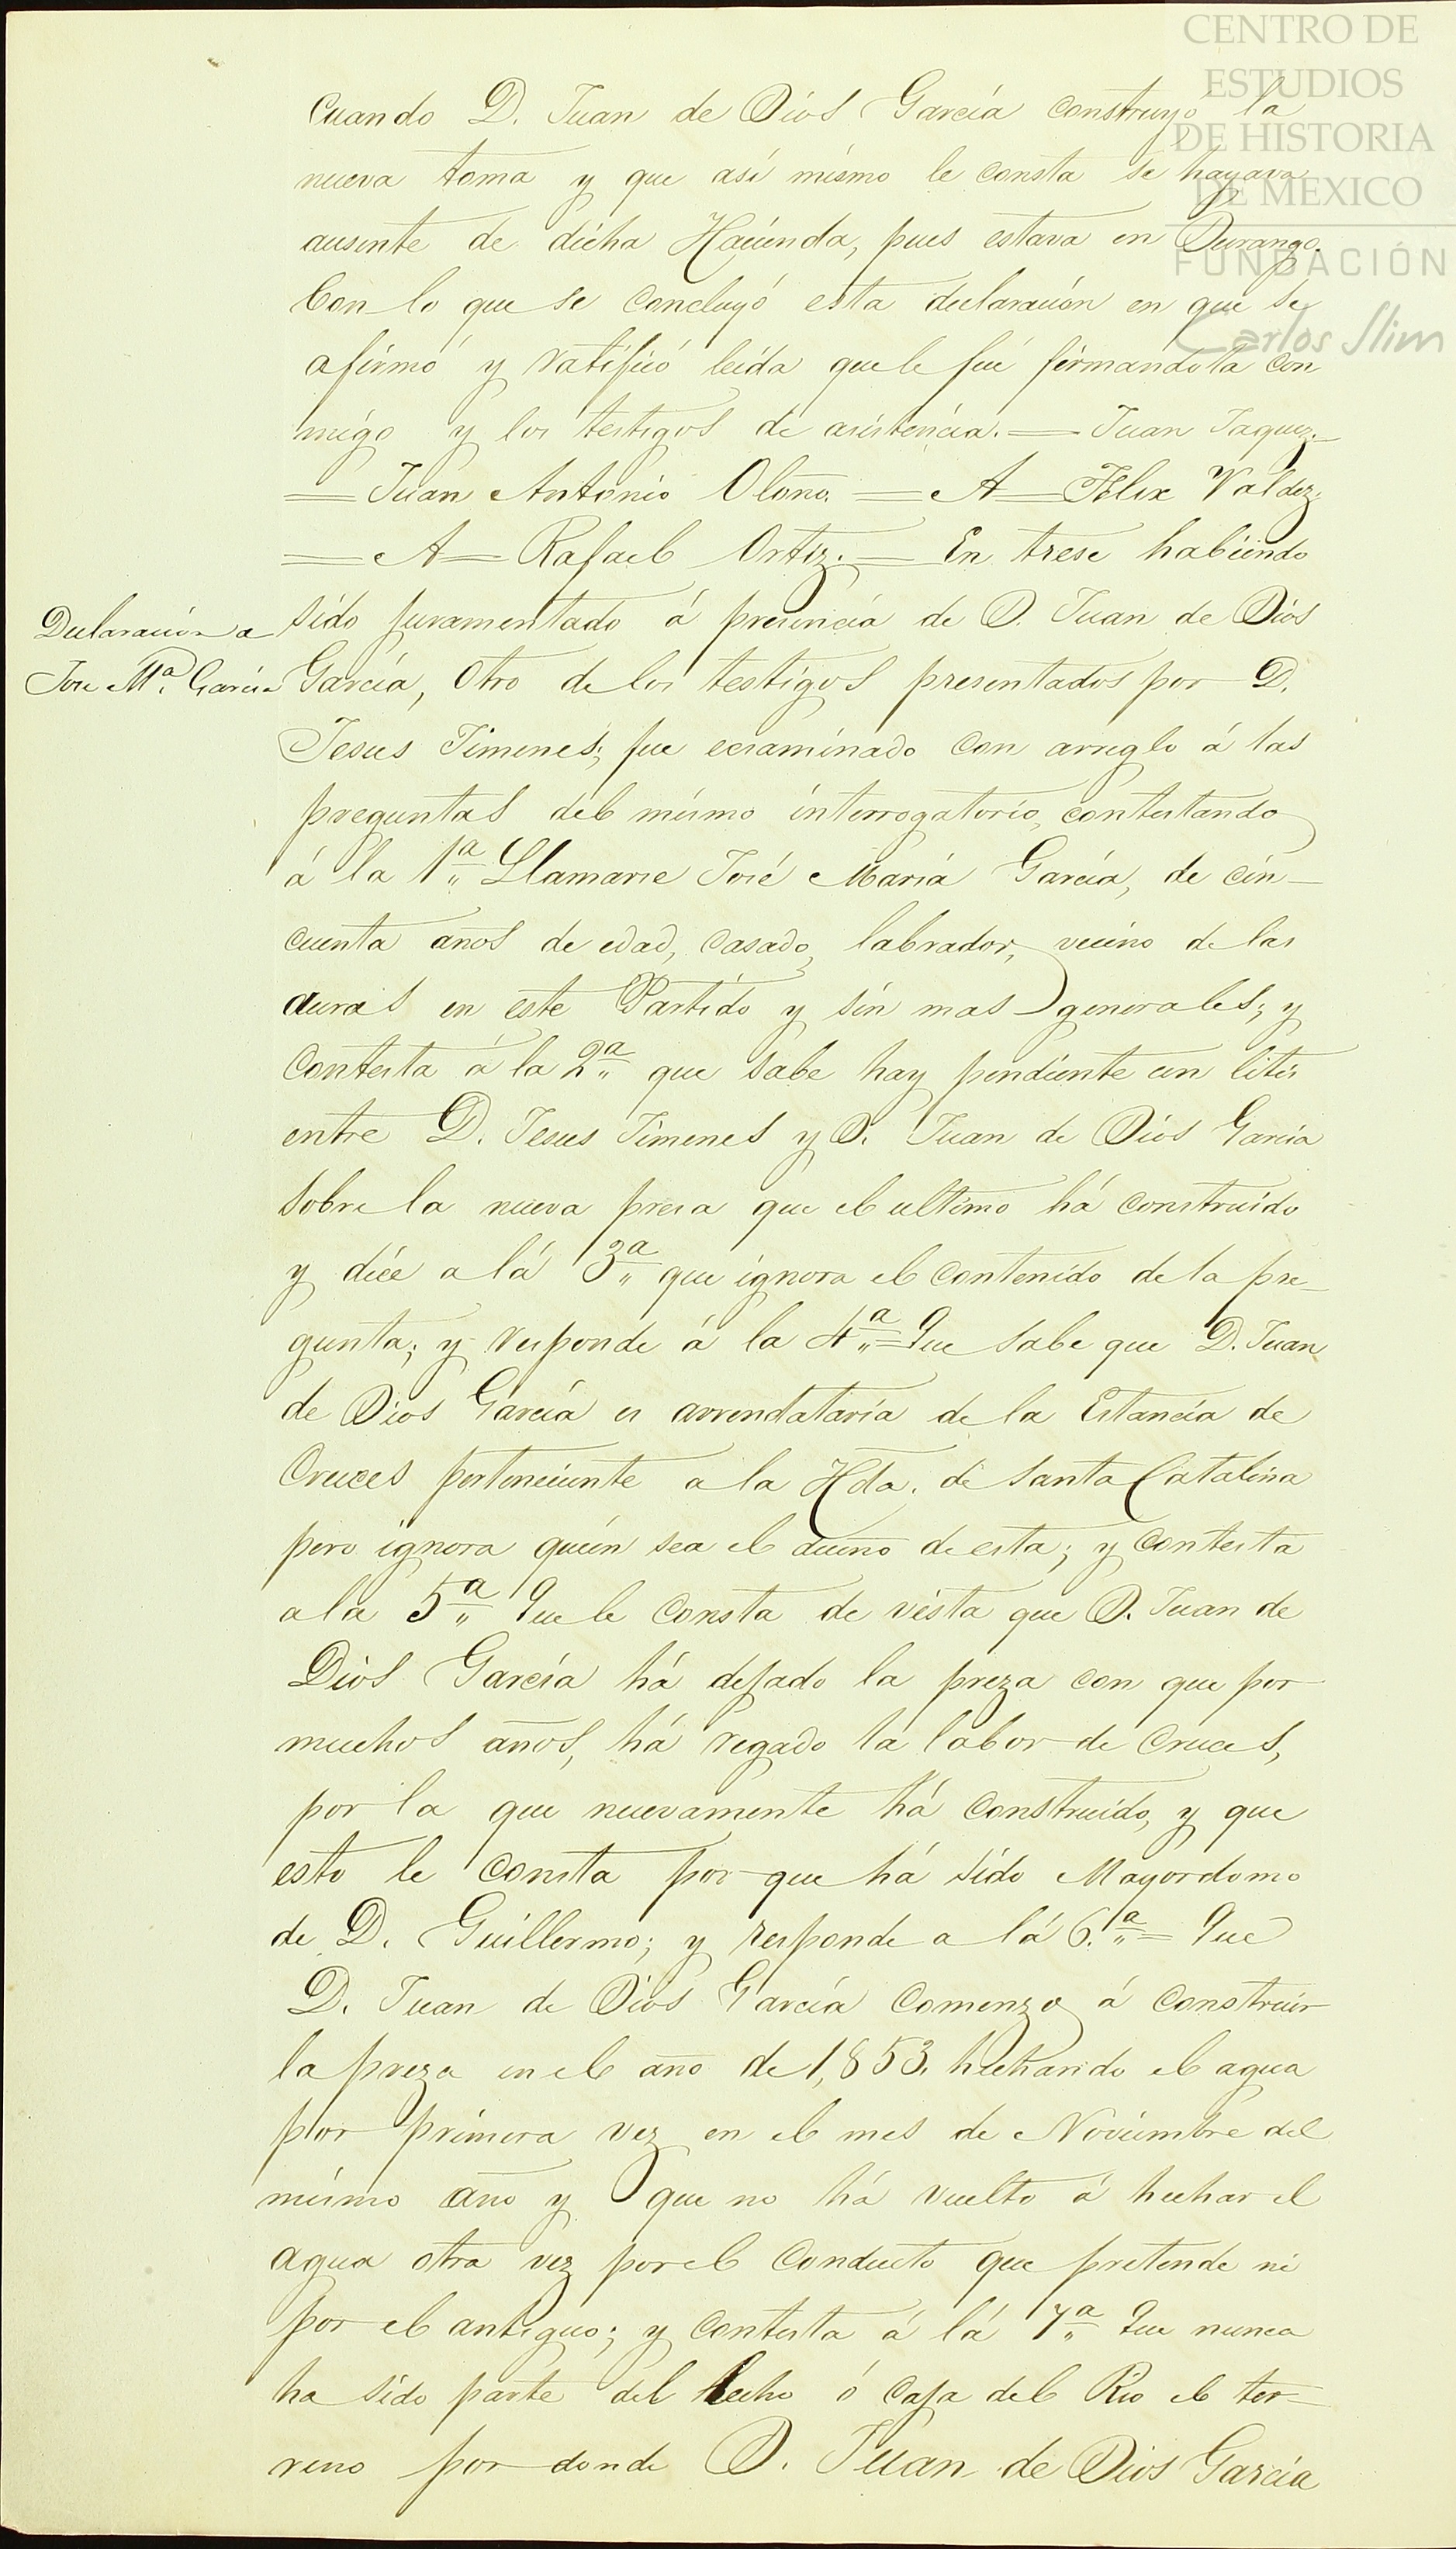 CENTRO DE
ESTUDIOS
DE HISTORIA
DE MEXICO
FUNDACIÓN
Carlos Slim
Cuando D. Juan de Dios García construyó la
nueva toma y que así mismo le consta se hayava
ausente de dicha Hacienda, pues estava en Durango.
Con lo que se concluyó esta declaración en que se
afirmó y ratificó leida que le fué firmandola con
migo y los testigos de asistencia.= Juan Jaquez.
= Juan Antonio Oloño. = A = Félix Valdez.
= A = Rafael Ortiz. = En trese habiendo
Declaración a
Jose Mª. García
sido juramentado á presencia de D. Juan de Dios
García, otro de los testigos presentados por D.
Jesus Jimenes; fue ecsaminado con arreglo á las
preguntas del mismo interrogatorio, contestando
á la 1ª Llamarse José María García, de cin-
cuenta años de edad, casado, labrador, vecino de las
auras en este Partido y sin mas generales; y
contesta á la 2ª que sabe hay pendiente un litis
entre D. Jesus Jimenes y D. Juan de Dios García
sobre la nueva presa que el ultimo há construido
y dice a lá 3ª que ignora el contenido de la pre-
gunta; y responde á la 4ª= Que sabe que D. Juan
de Dios García es arrendataria de la Estancia de
Cruces perteneciente a la Hda. de Santa Catalina
pero ignora quien sea el dueño de esta; y contesta
a la 5ª Que le consta de vista que D. Juan de
Dios García há dejado la preza con que por
muchos años, há regado la labor de Cruces,
por la que nuevamente há construido, y que
esto le consta por que há sido Mayordomo
de D. Guillermo; y responde a lá 6.ª= Que
D. Juan de Dios García comenzo á construir
la preza en el año de 1,853. hechando el agua
por primera vez en el mes de Noviembre del
mismo año y que no há vuelto á hechar el
agua otra vez por el conducto que pretende ni
por el antiguo; y contesta á lá 7ª Que nunca
ha sido parte del lecho ó caja del Rio el ter-
reno por donde D. Juan de Dios García